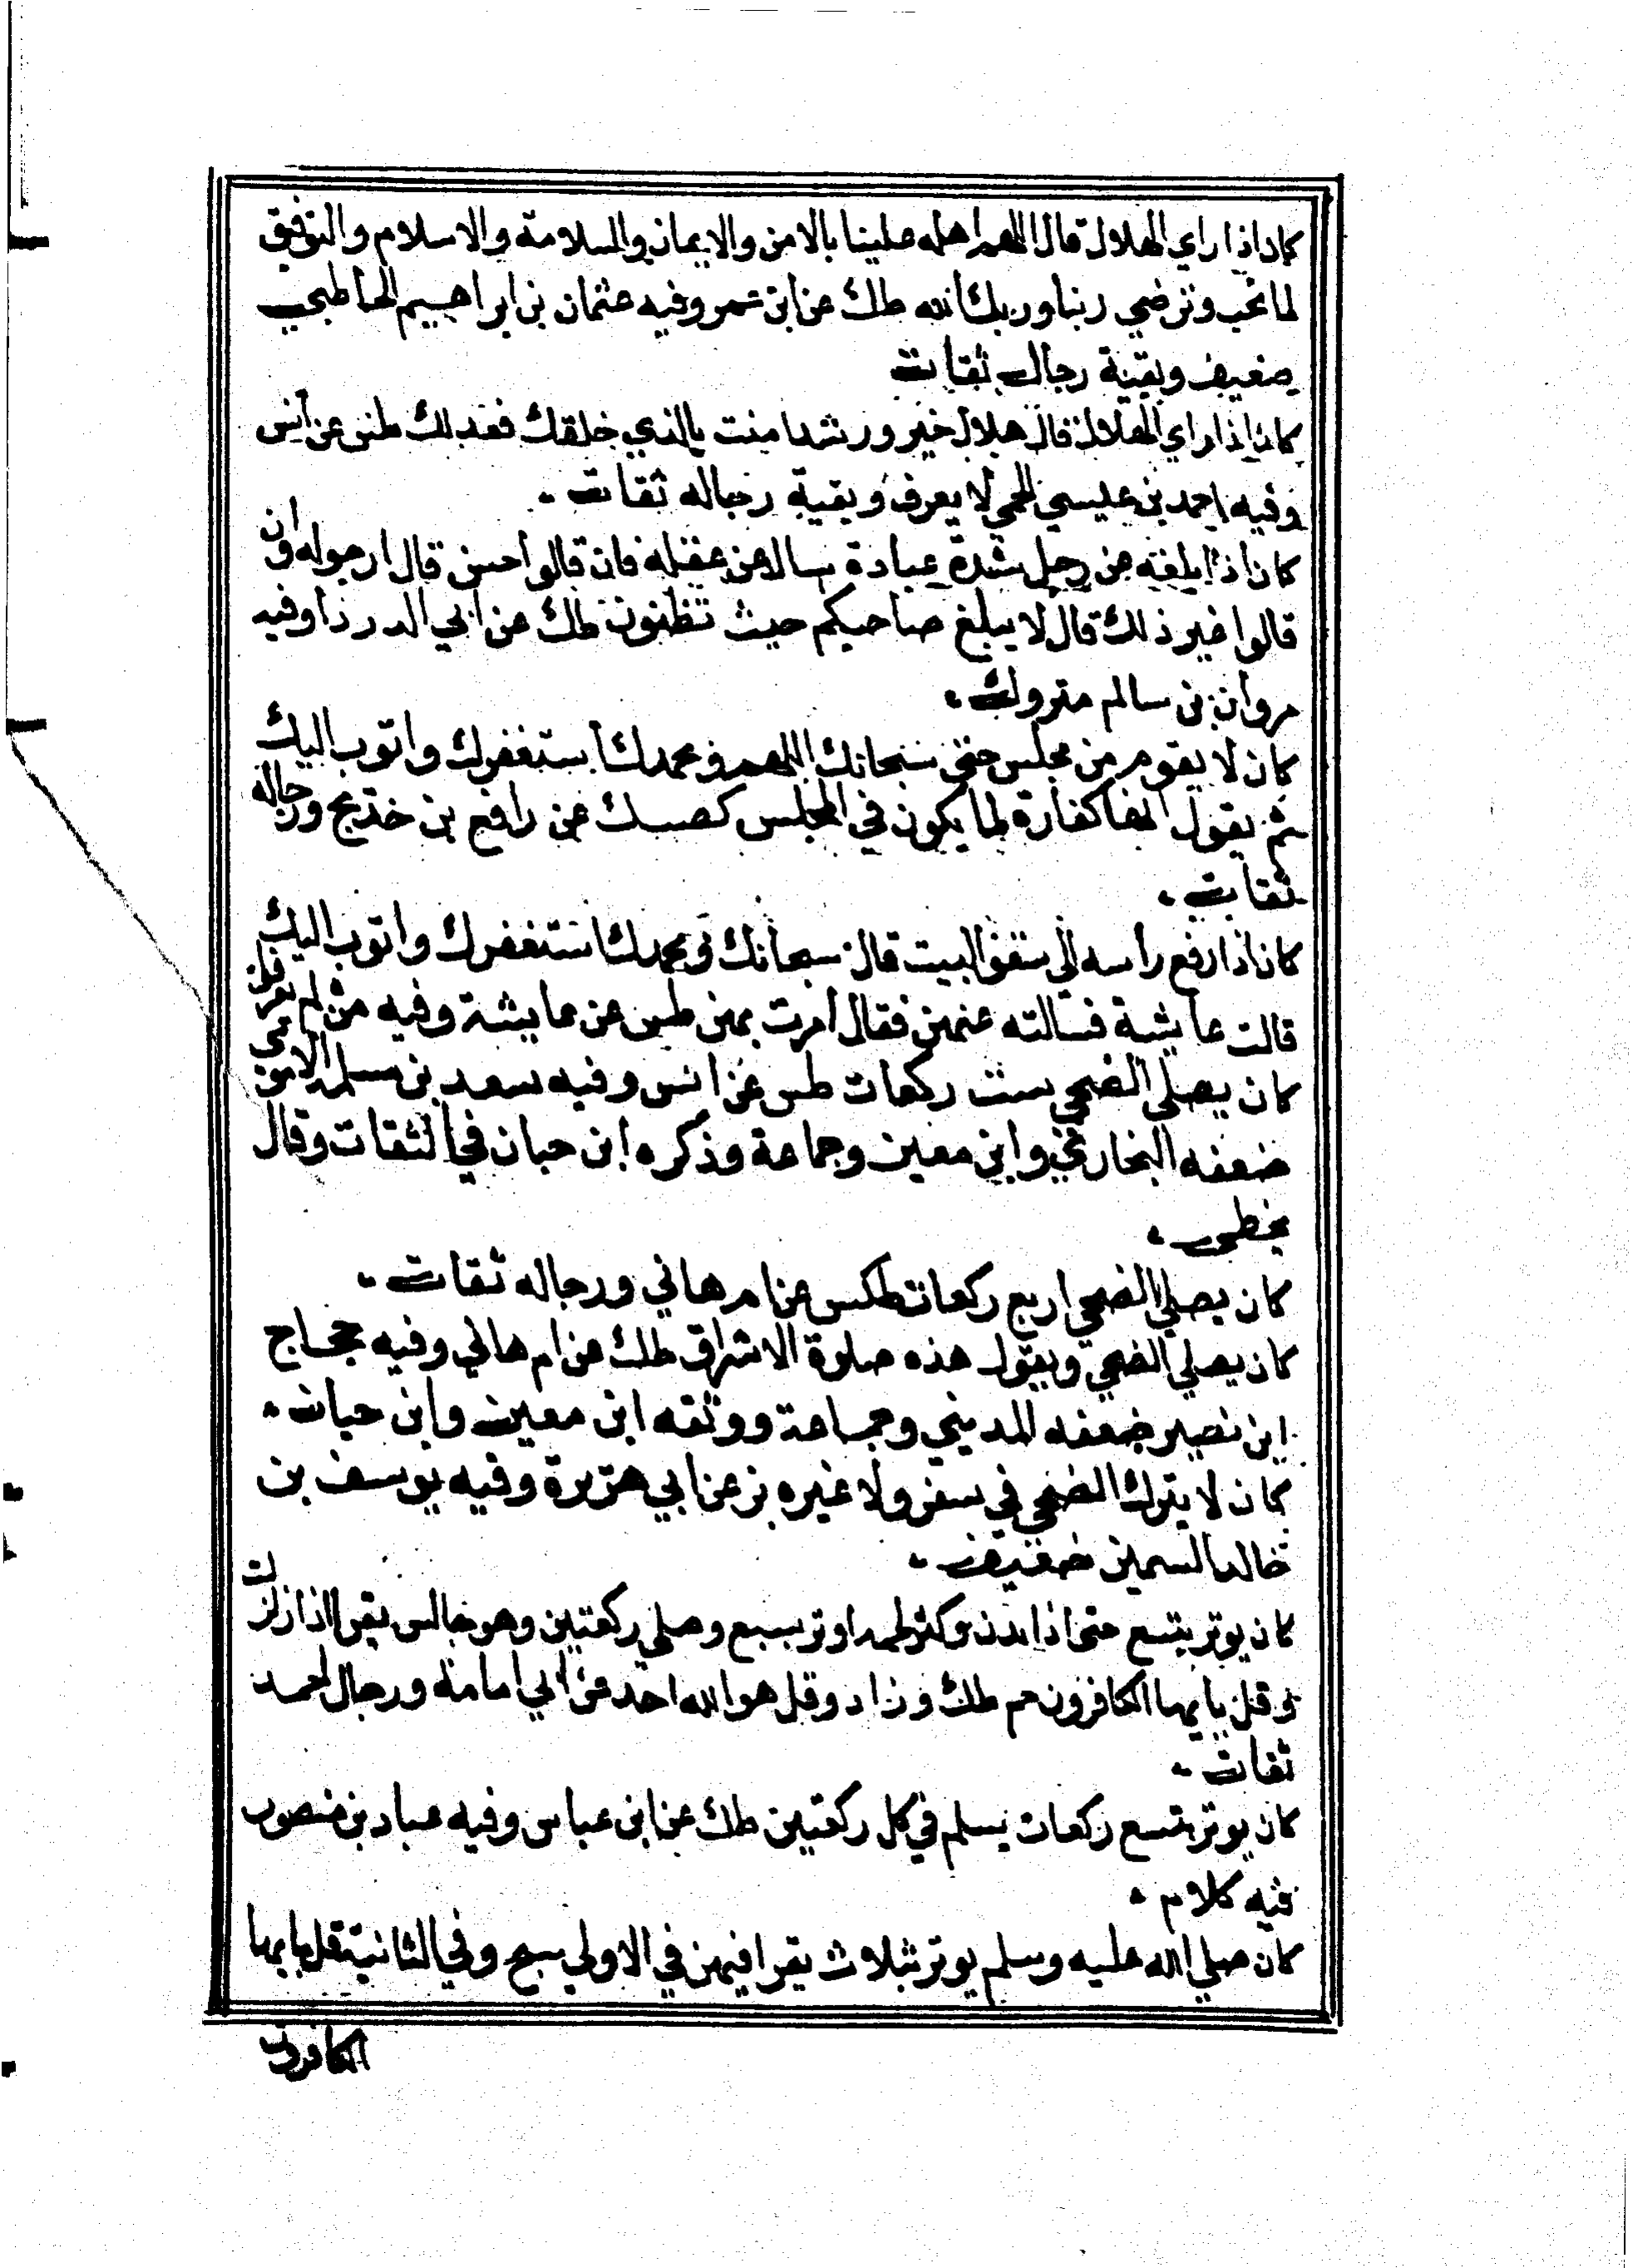 كان اذا راي الهلال قال اللهم اهله علينا بالامن والايمان والسلامة والاسلام والتوفيق
لما تحب وترضي ربنا وربك الله طك عن ابن عمر وفيه عثمان بن ابراهيم الحاطبي
ضعيف وبقية رجاله ثقات
كان اذا راي الهلال قال هلال خير ورشد امنت بالذي خلقك فعدلك طس عن انس
وفيه احمد بن عيسي اللخمي لا يعرف وبقية رجاله ثقات
كان اذا بلغه عن رجل شدة عبادة سال عن عقله فان قالوا حسن قال ارجوله وان
قالوا غير ذلك قال لا يبلغ صاحبكم حيث تظنون طك عن ابي الدردا وفيه
مروان بن سالم متروك
كان لا يقوم من مجلس حتي سبحانك اللهم وبحمدك استغفرك واتوب اليك
ثم يقول انها كفارة لما يكون في المجلس كصك عن رافع بن خديج ورجاله
ثقات
كان اذا رفع راسه الي سقف البيت قال سبحانك وبحمدك استغفرك واتوب اليك
قالت عايشة فسالته عنهن فقال امرت بهن طس عن عايشة وفيه من لم يعرف
كان يصلي الضحي ست ركعات طس عن انس وفيه سعد بن مسلمة الاموي
ضعفه البخاري وابن معين وجماعة وذكره ابن حبان في الثقات وقال
يخطي
كان يصلي الضحي اربع ركعات طكس عن ام هاني ورجاله ثقات
كان يصلي الضحي ويقول هذه صلوة الاشراق طك عن ام هاني وفيه حجاج
ابن نصير ضعفه المديني وجماعة ووثقه ابن معين وابن حبان
كان لا يترك الضحي في سفر ولا غيره بز عن ابي هريرة وفيه يوسف بن
خالد السمين ضعيف
كان يوتر بتسع حتي اذا بدن وكثر لحمه اوتر بسبع وصلي ركعتين وهو جالس يقرا اذا زلزلت
وقل يا يها الكافرون حم طك وزاد وقل هو الله احد عن ابي امامة ورجال احمد
ثقات
كان يوتر بتسع ركعات يسلم في كل ركعتين طك عن ابن عباس وفيه عباد بن منصور
فيه كلام
كان صلي الله عليه وسلم يوتر بثلاث يقرا فيهن في الاولي سبح وفي الثانية قل يا يها
الكافرون